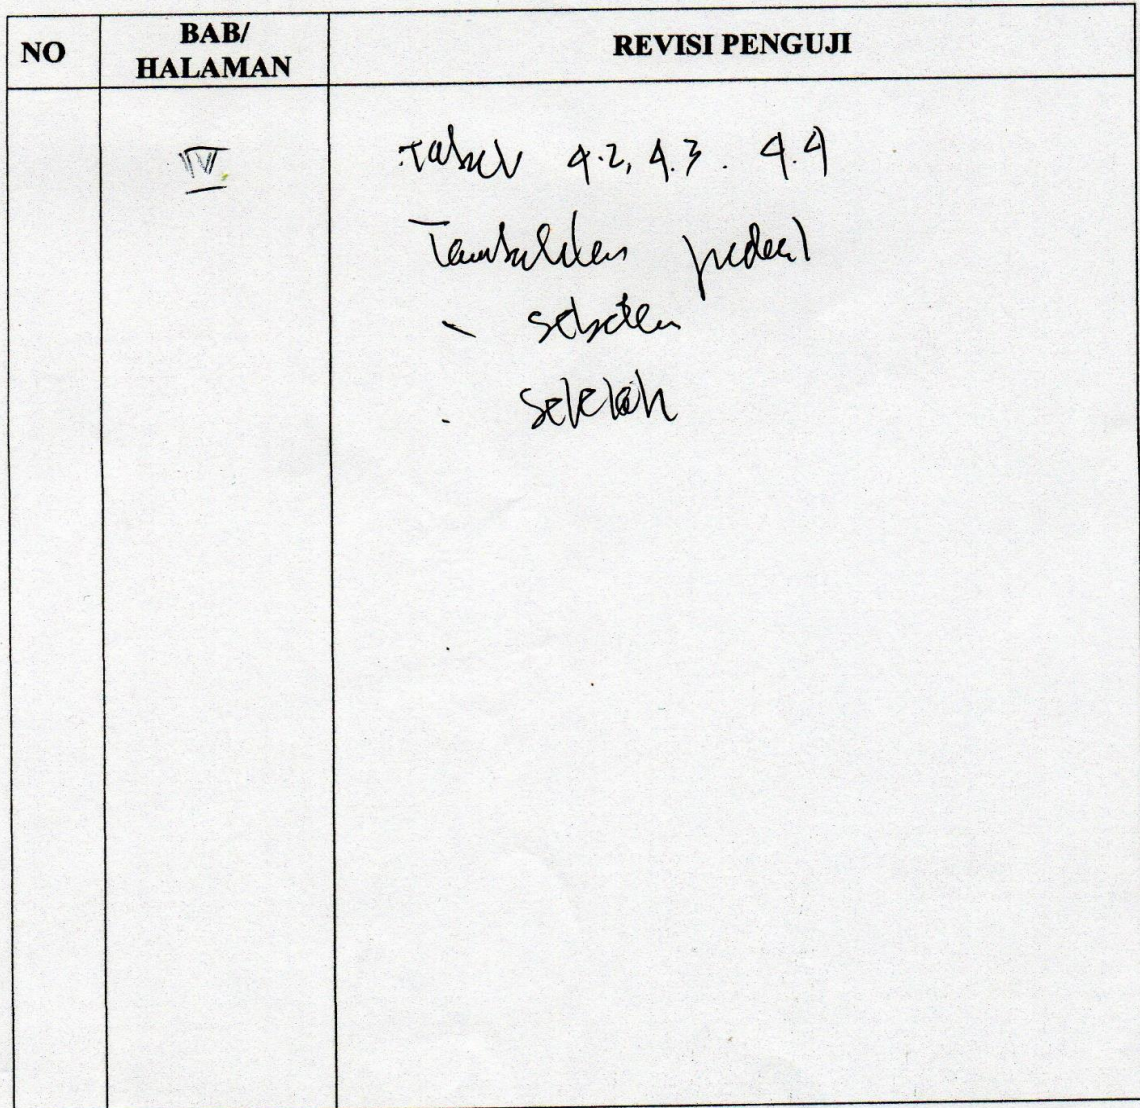 NO
BAB/
HALAMAN
REVISI PENGUJI
IV
Tabel 4.2, 4.3. 4.4
Tambahkan judul
- sebelum
- setelah